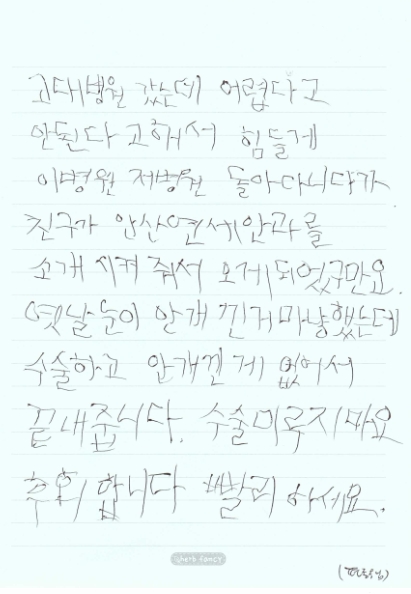 고대병원 갔는데 어렵다고
안된다고해서 힘들게
이병원 저병원 돌아다니다가
친구가 안산연세안과를
소개시켜줘서 오게되었구만요.
옛날눈이 안개낀거마냥했는데
수술하고 안개낀게 없어서
끝내줍니다. 수술미루지마요
후회합니다 빨리하세요.
herb fancy